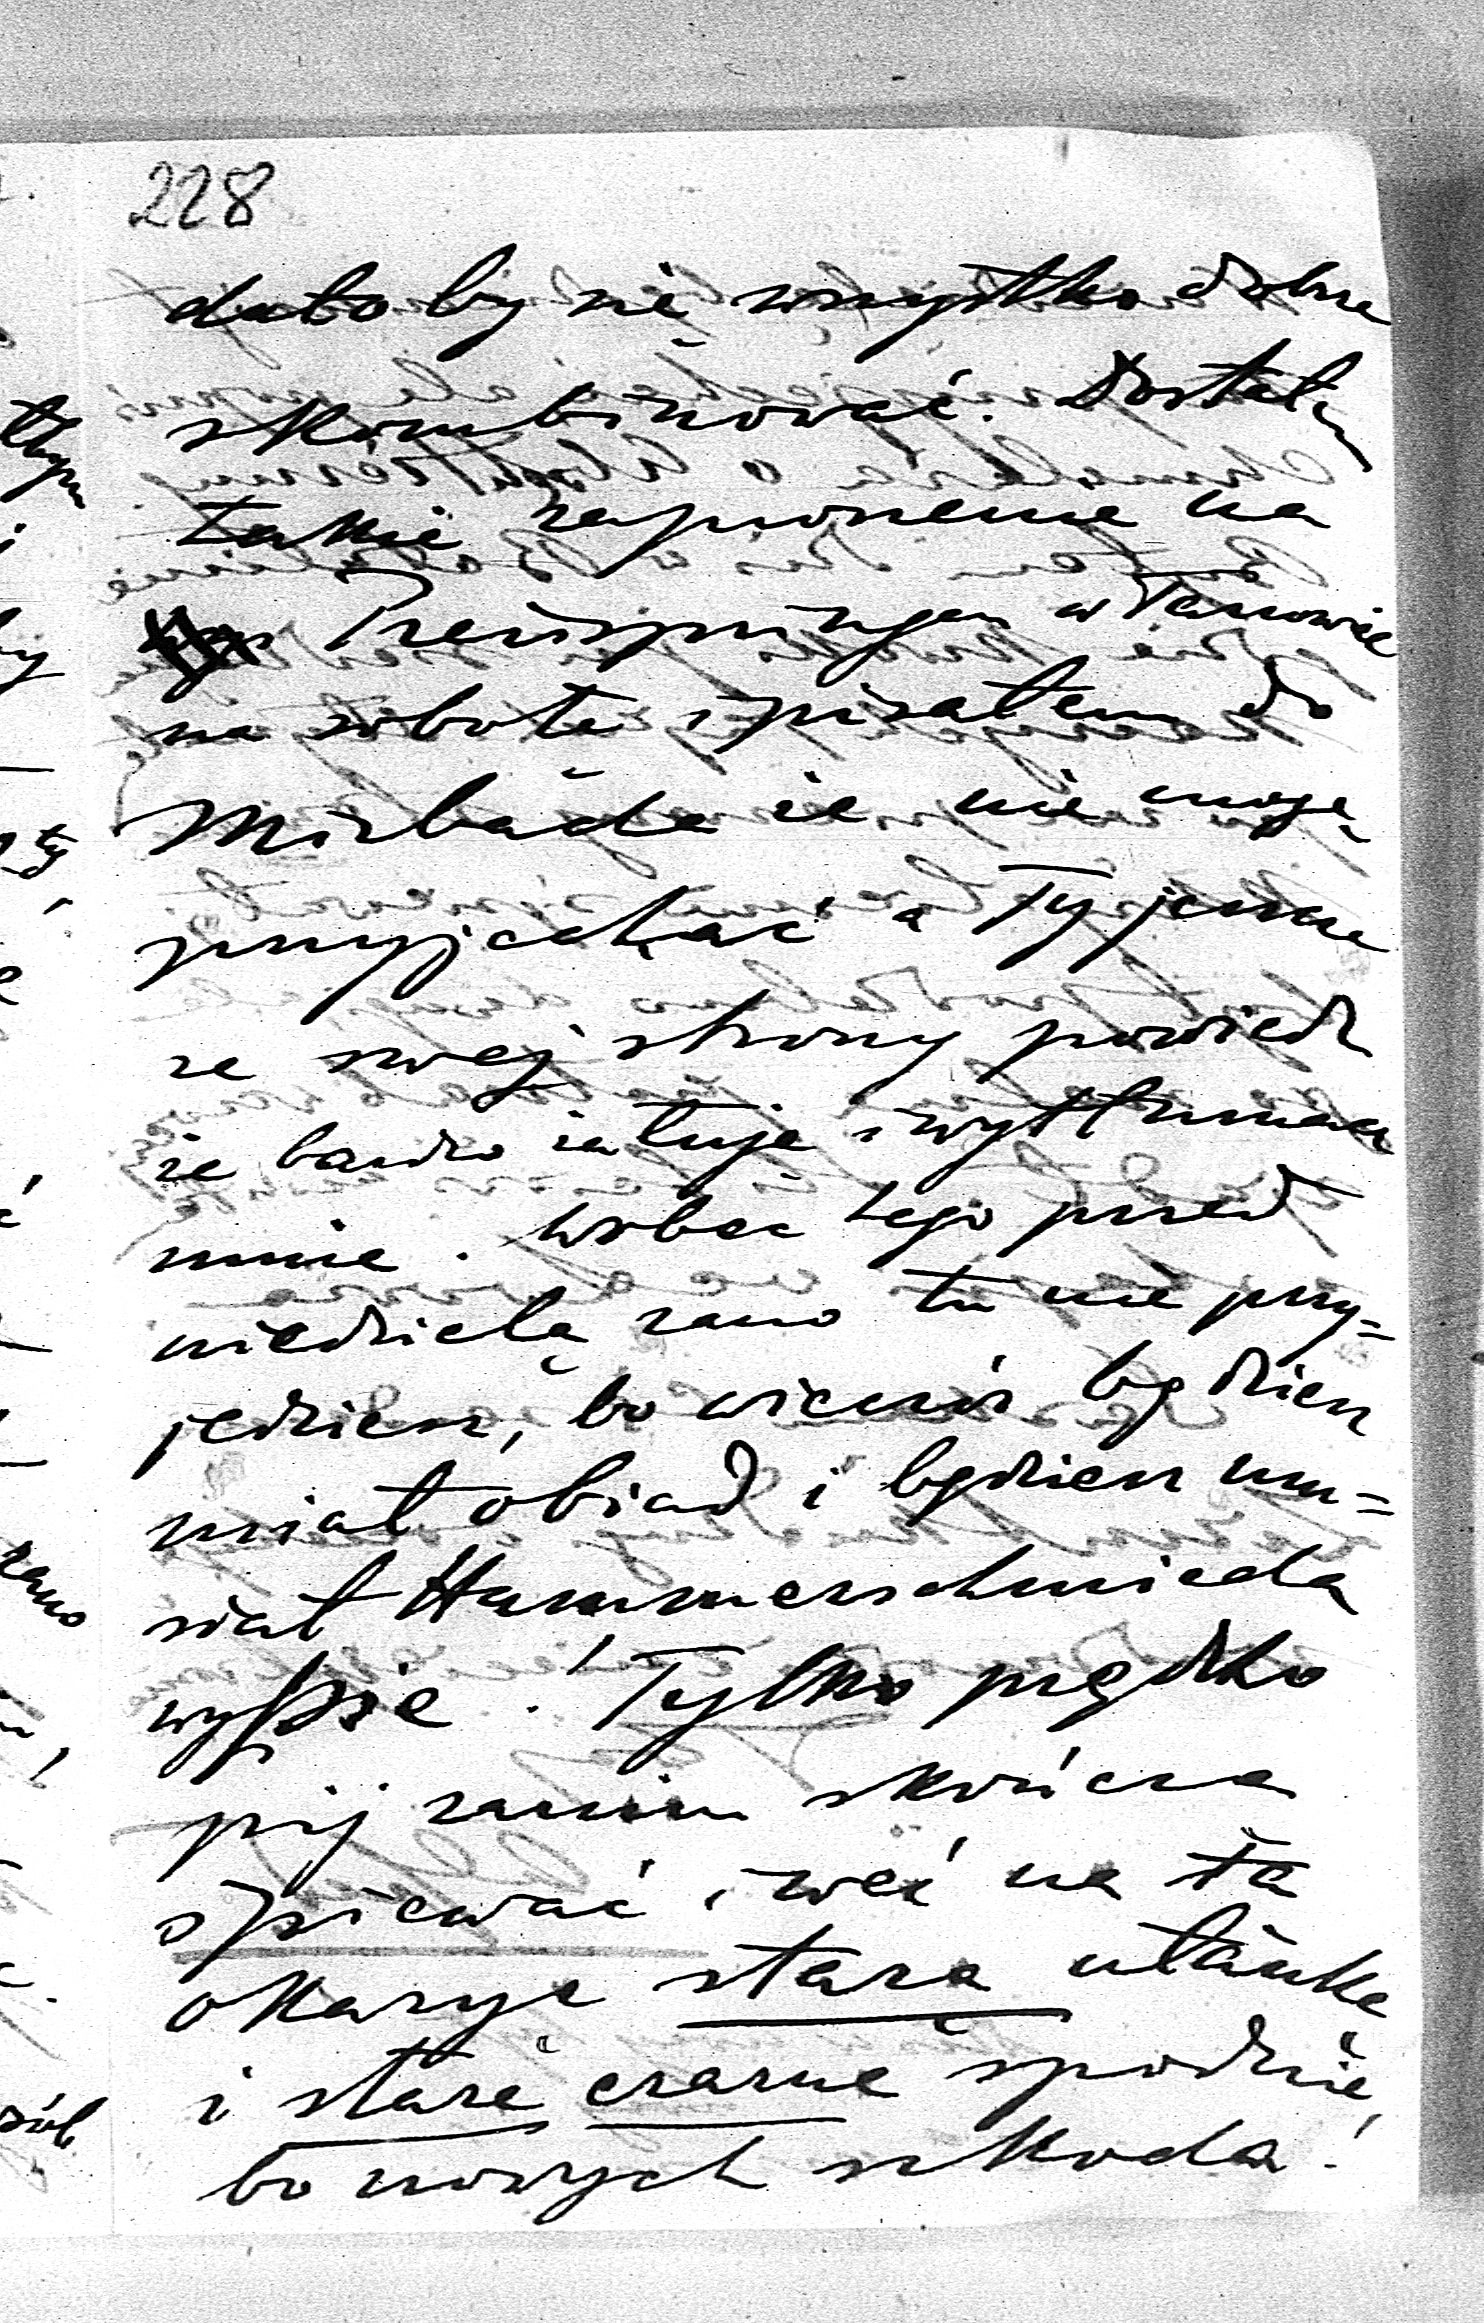 228
dało by się wszystko dobrze
skombinować. Dostałem
takie zaproszenie na
Preisspringen w Tarnowie
na sobotę i pisałem do
Mirbacha że nie mogę
przyjechać a Ty jemu
ze swej strony powiedz
że bardzo żałuję i wytłumacz
mnie. Wobec tego przed
niedzielą rano tu nie przy=
jedziesz, bo wieczór będziesz
miał obiad i będziesz mu=
siał Hammerschmieda
wypić! Tylko prędko
pij zanim skończą
śpiewać i weź na tą
okazyę starą ułankę
i stare czarne spodnie,
bo nowych szkoda!